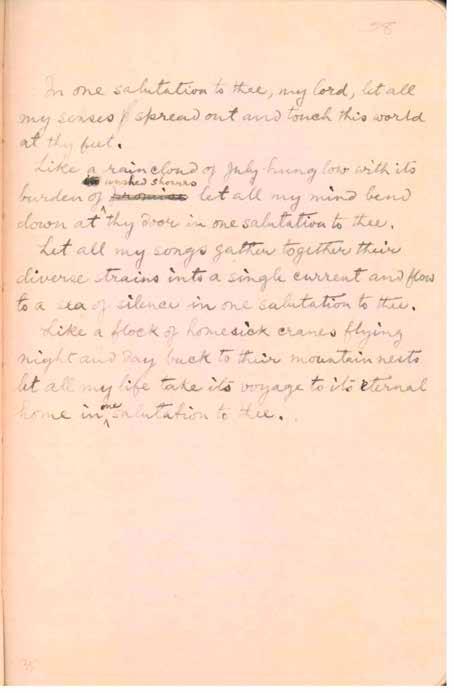 In one salutation to thee, my lord, let all
my senses spread out and touch this world
at thy feet.
Like a rain cloud of July hung low with its
unshed showers
burden of let all my mind bend
down at thy door in one salutation to thee.
Let all my songs gather together their
diverse strains into a single current and flow
to a sea of silence in one salutation to thee.
Like a flock of homesick cranes flying
night and day back to their mountain nests
let all my life take its voyage to its eternal
home in one salutation to thee.